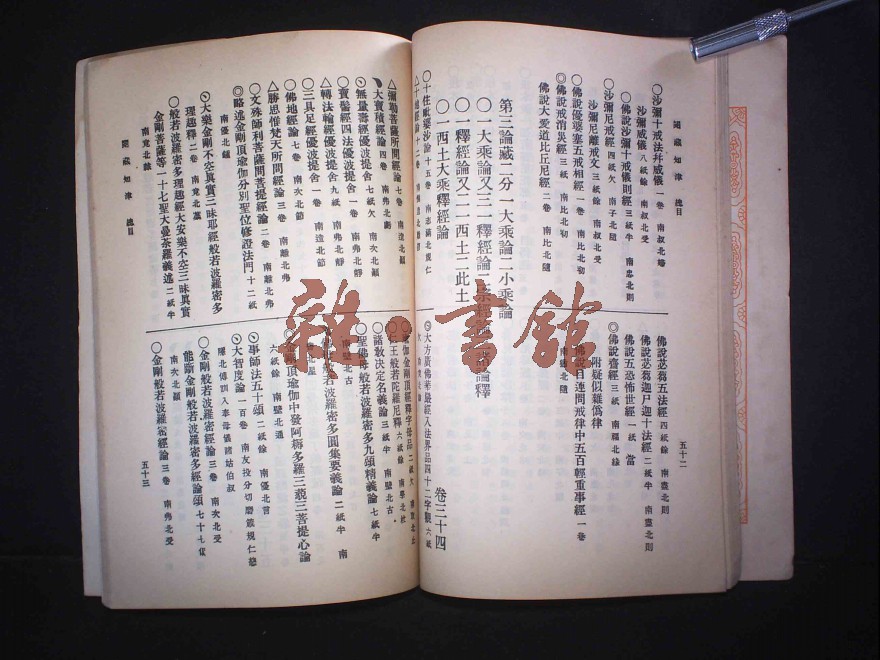 閱藏知津 總目
五十二
〇沙彌十戒法幷威儀 一卷 南叔北
沙彌威儀 八紙餘 南叔北受
〇佛說沙彌十戒儀則經 三紙半 南忠北則
沙彌尼離戒文 三紙餘 南叔北受
〇沙彌尼戒經 四紙欠 南子北隨
〇佛說優婆塞五戒相經 一卷 南比北初
◎佛說戒消災經 三紙 南比北初
佛說大愛道比丘尼經 二卷 南比北隨
佛說苾芻五法經 四紙餘 南盡北則
佛說苾芻迦尸迦十法經 二紙半 南盡北則
佛說五恐怖世經 一紙 當
◎佛說齋經 三紙 南福北緣
附疑似雜僞律
佛說目連問戒律中五百輕重事經 一卷
第三論藏二分一大乘論二小乘論
〇一大乘論又三一釋經論二宗經論三諸論釋
〇一釋經論又二一西土二此土
〇一西土大乘釋經論
卷三十四
〇十住毗婆沙論 十五卷
△十地經論 十二卷
△彌勒菩薩所問經論 七卷
大寶積經論 四卷 南弗北
無量壽經優波提舍 七紙欠 南次北顚
寶髻經四法優波提舍 一卷 南弗北靜
△轉法輪經優波提舍 九紙 南弗北靜
〇三具足經優波提舍 一卷 南造北節
〇佛地經論 七卷 南次北節
△勝思惟梵天所問經論 三卷 南離北弗
〇文殊師利菩薩問菩提經論 二卷 南離北弗
◎略述金剛頂瑜伽分別聖位修證法門 十二紙
南優北
〇大樂金剛不空眞實三昧耶經般若波羅密多
理趣釋 二卷 南竟北
〇般若波羅密多理趣經大安樂不空三昧眞實
金剛菩薩等一十七聖大曼荼羅義述 二紙半
南竟北
閱藏知津 總目
◎大方廣佛華嚴經入法界品四十二字觀 六紙
瑜伽金剛頂經釋字母品 二紙欠
仁王般若陀羅尼釋 六紙餘
〇諸敎決定名義論 三紙半 南壁北古
聖佛母般若波羅密多九頌精義論 七紙半
南壁北古
般若波羅密多圓集要義論 二紙半 南
金剛頂瑜伽中發阿耨多羅三藐三菩提心論
六紙餘 南壁北通
〇事師法五十頌 二紙餘 南優北言
大智度論 一百卷 南友投分切磨箴規仁慈
隱北傅訓入奉母儀諸姑伯叔
〇金剛般若波羅密經論 三卷 南次北受
能斷金剛般若波羅密多經論頌 七十七偈
南次北顚
〇金剛般若波羅密經論 三卷 南弗北受
五十三
雜·書館